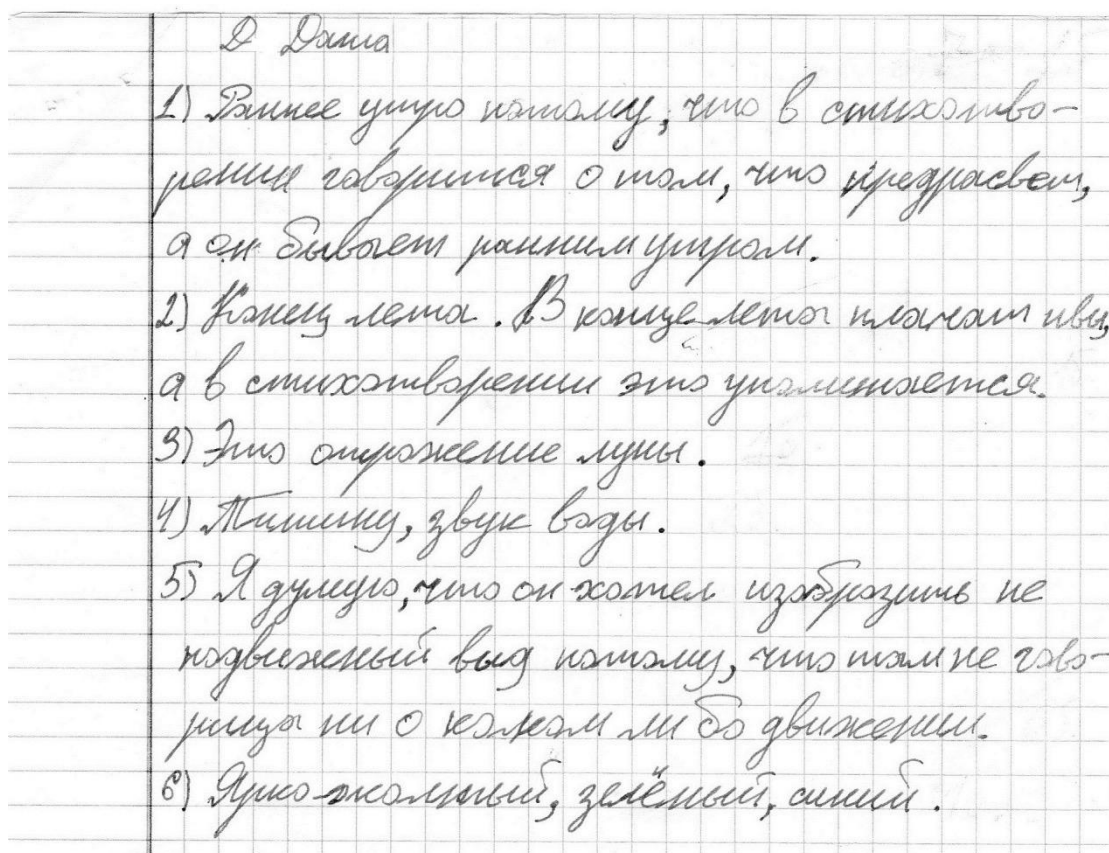 Д Даша
1) Раннее утро потому, что в стихотво-
рении говорится о том, что предрасвет,
а он бывает ранним утром.
2) Конец лета. В конце лета плачат ивы,
а в стихотворении это упоминается.
3) Это отражение луны.
4) Тишину, звук воды.
5) Я думую, что он хотел изобразить не
подвижный вид потому, что там не гово-
рица ни о каком ли бо движении.
6) Ярко-жолтый, зелёный, синий.